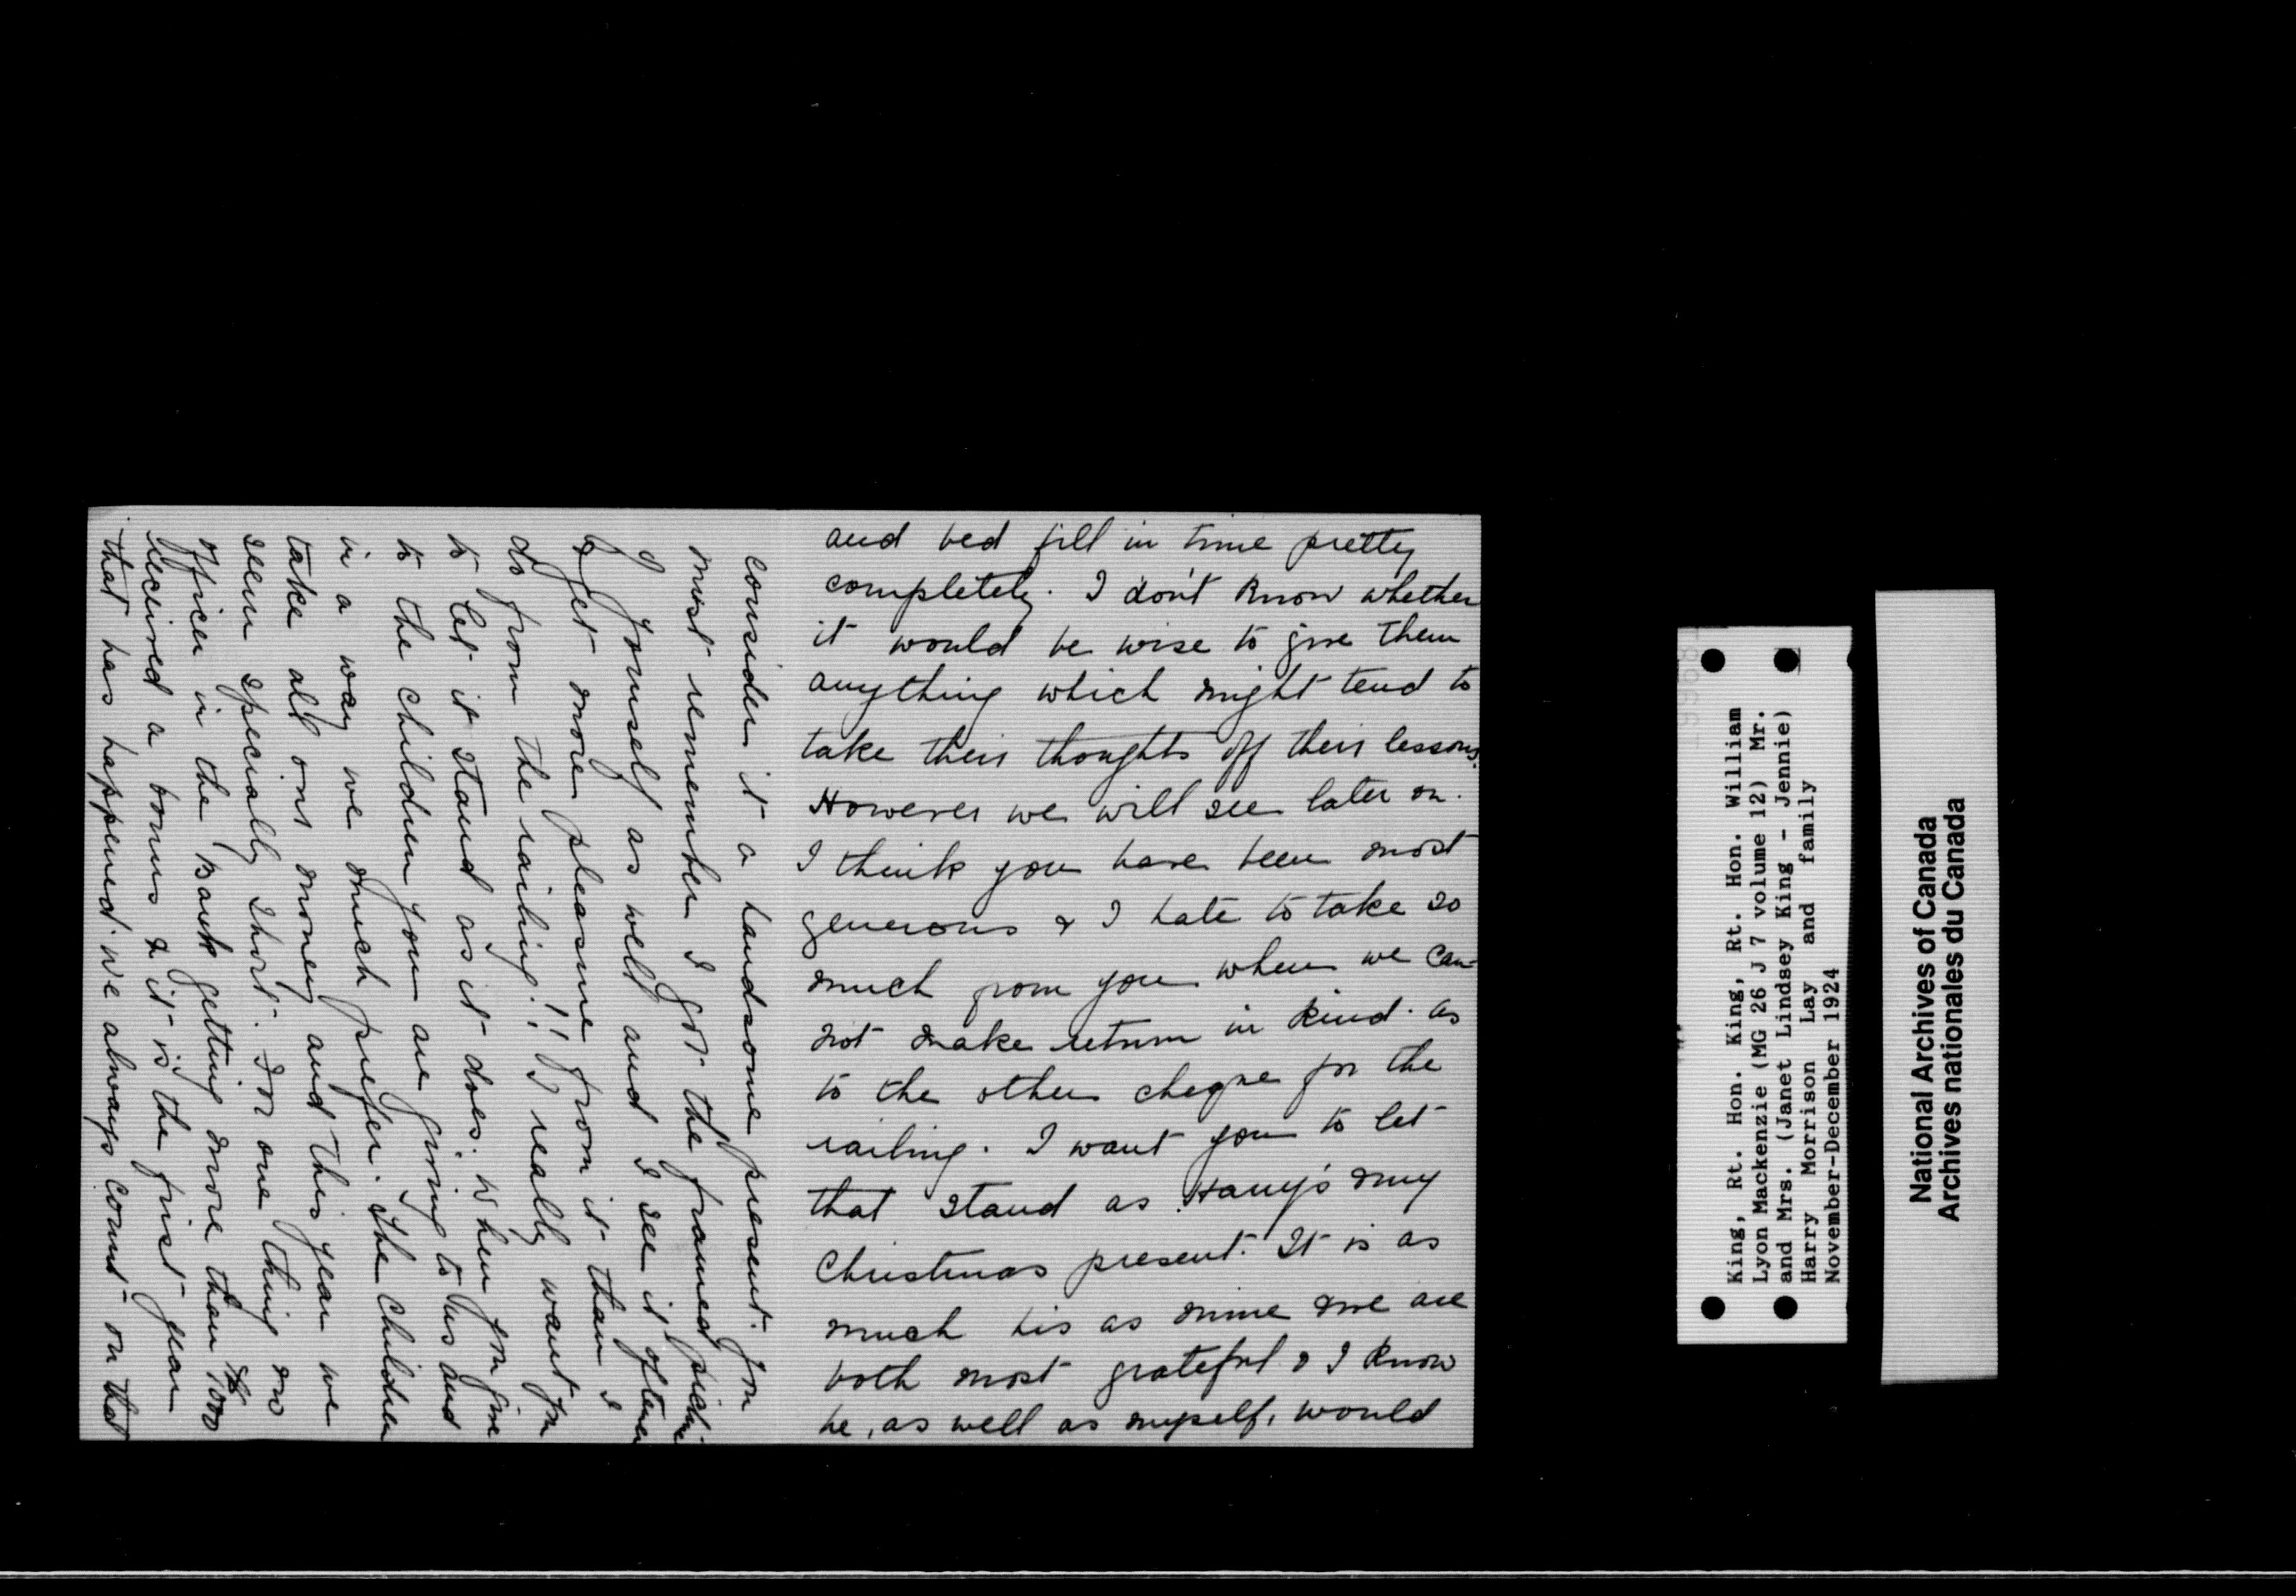 and bed fill in time pretty
completely. I don't know whether
it would be wise to give them
anything which might tend to
take their thoughts off their lessons.
However we will see later on.
I think you have been most
generous & I hate to take so
much from you when we can-
not make return in kind. As
to the other cheque for the
railing. I want you to let
that stand as Harry's & my
Christmas present. It is as
much his as mine & we are
both most grateful & I know
he, as well as myself, would
consider it a handsome present. You
must remember I got the framed picture
of yourself as well and I see it oftener
& get more pleasure from it than I
do from the railing!! I really want you
to let it stand as it does. When you give
to the children you are giving to us and
in a way we much prefer. The children
take all our money and this year we
seem specially short. For one thing no
officer in the Bank getting more than $1000
received a bonus & it is the first year
that has happened. We always count on that
King, Rt. Hon. King, Rt. Hon. William
Lyon Mackenzie (MG 26 J 7 volume 12) Mr.
and Mrs. (Janet Lindsey King - Jennie)
Harry Morrison Lay and family
November-December 1924
National Archives of Canada
Archives nationales du Canada